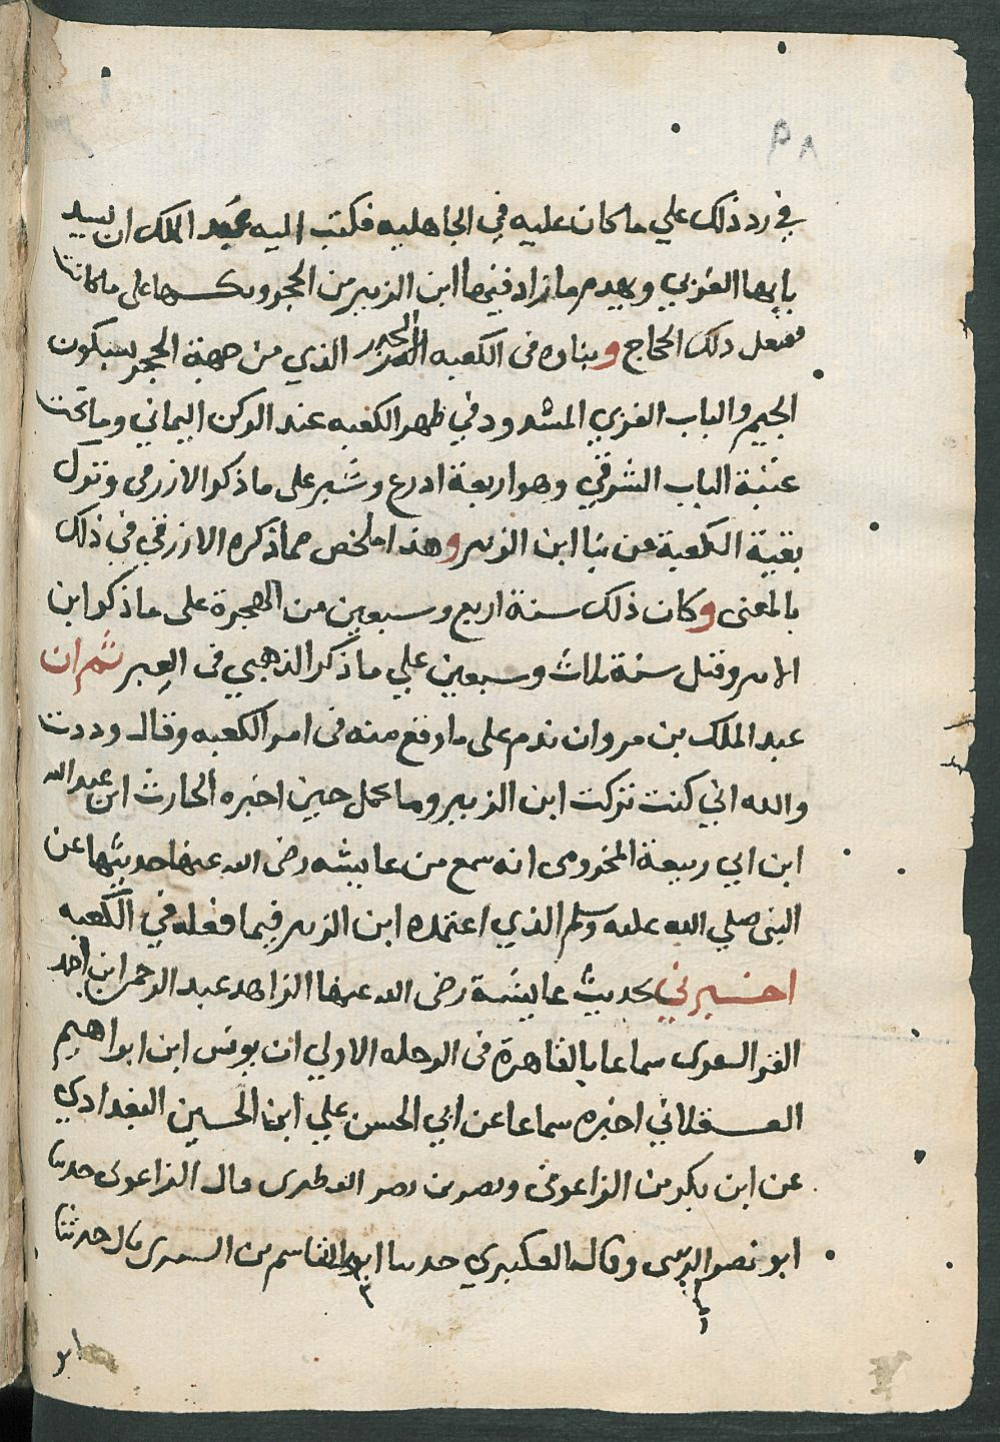 ٩٨
في رد ذلك علي ما كان عليه في الجاهليه فكتب اليه عبد الملك ان يسد
بابها الغربي ويهدم ما زاد فيها ابن الزبير من الحجر ويكسها على ما كانت
ففعل ذلك الحجاج وبناوه في الكعبه الجدر الذي من جهة الحجر بسكون
الجيم والباب الغربي المسدود في ظهر الكعبه عند الركن اليماني وما تحت
عتبة الباب الشرقي وهو اربعة ادرع وشبر على ما ذكر الازرقي وترك
بقية الكعبة من بنا ابن الزبير وهذا ملخص مما ذكره الازرقي في ذلك
بالمعنى وكان ذلك سنة اربع وسبعين من الهجرة على ما ذكر ابن
الاثير وقتل سنة ثلاث وسبعين علي ما ذكر الذهبي في العبر ثم ان
عبد الملك بن مروان ندم على ما وقع منه في امر الكعبه وقال وددت
والله اني كنت تركت ابن الزبير وما تحمل حين اخبره الحارث ابن عبد الله
ابن ابي ربيعة المخزومي انه سمع من عايشه رضى الله عنها حديثها عن
النبى صلي الله عليه وسلم الذي اعتمده ابن الزبير فيما فعله في الكعبه
اخبرني بحديث عايشة رضى الله عنها الزاهد عبد الرحمن ابن احمد
الغز السعرى سماعا بالقاهرة في الرحله الاولي ان يونس ابن ابراهيم
العسقلاني اخبره سماعا عن ابي الحسن علي ابن الحسين البغدادي
عن ابن بكر بن الزاعونى ونصر بن نصر العكبرى قال الزاعونى حدثنا
ابو نصر الزينبى وقال العكبري حدثنا ابو القاسم بن السرى قال حدثنا